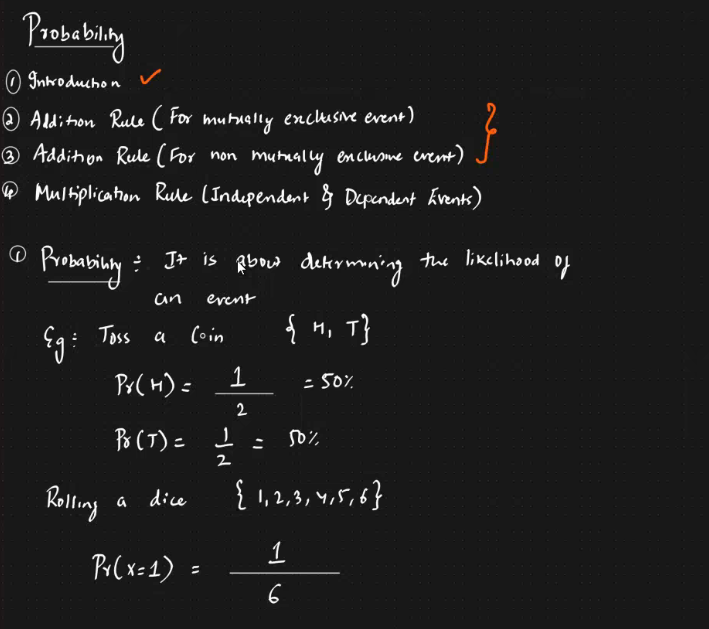 Probability
① Introduction ✓
② Addition Rule (For mutually exclusive event)
③ Addition Rule (For non mutually exclusive event)
④ Multiplication Rule (Independent & Dependent Events)
① Probability : It is about determining the likelihood of
an event
Eg: Toss a Coin {H, T}
Pr(H) = 1/2 = 50%
Pr(T) = 1/2 = 50%
Rolling a dice {1,2,3,4,5,6}
Pr(x=1) = 1/6